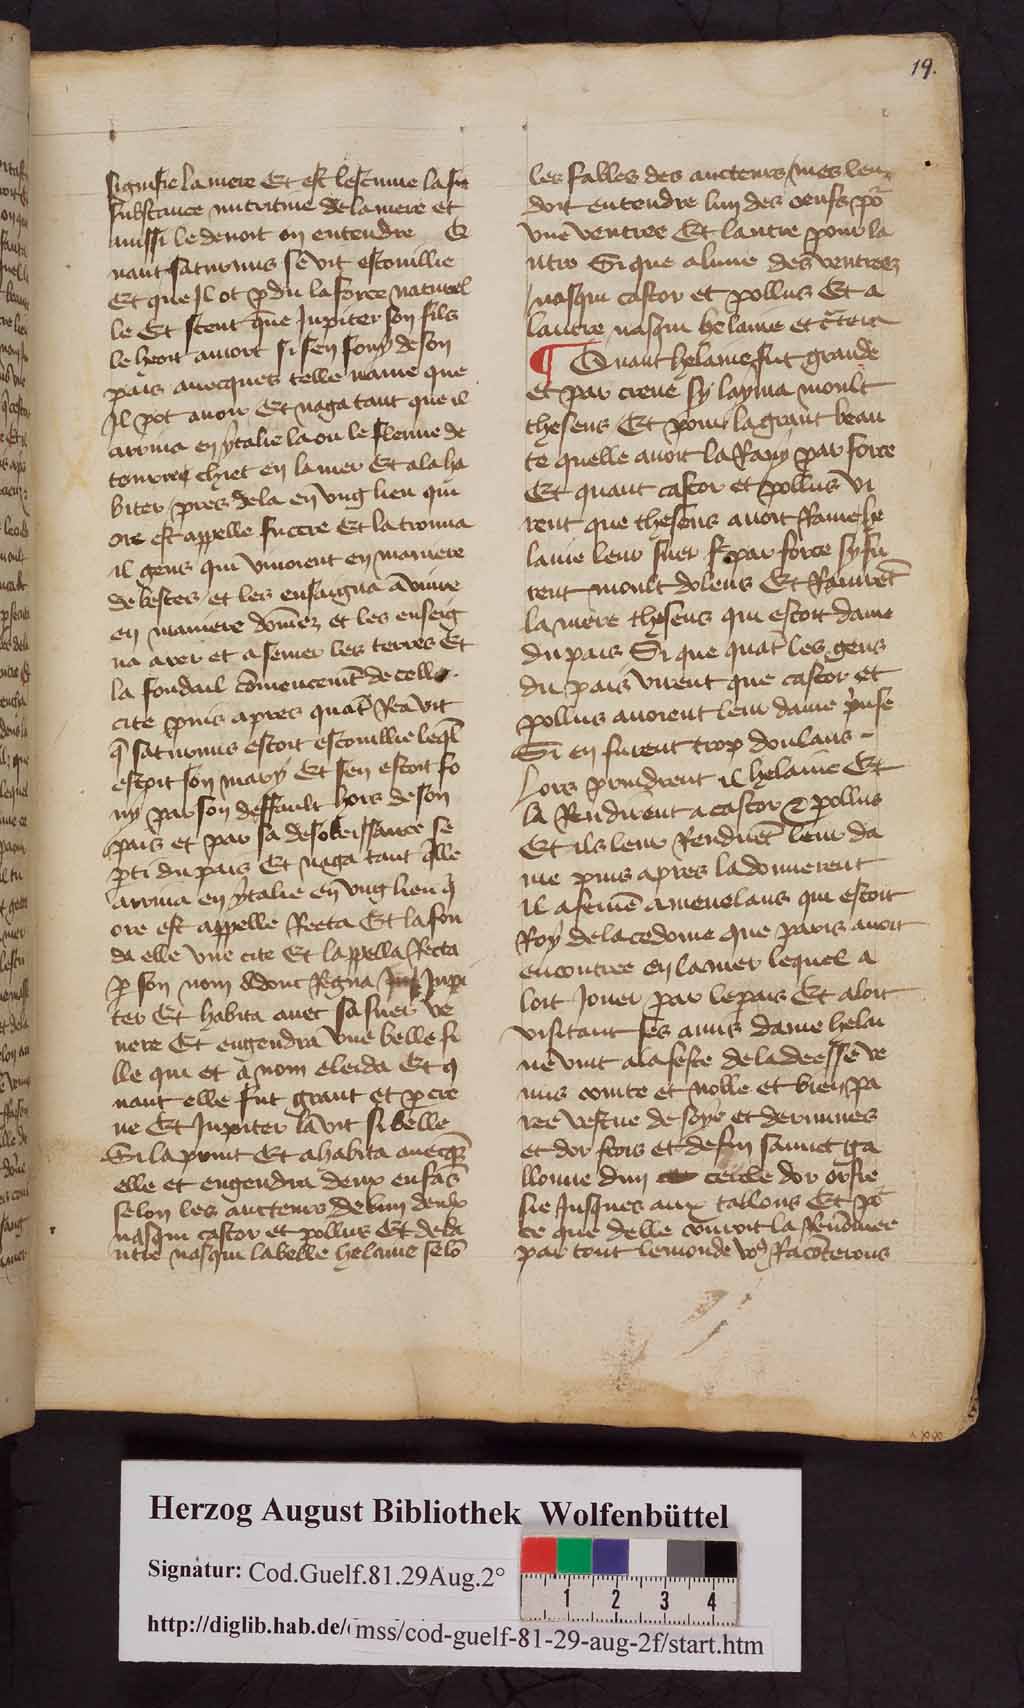 19.
signifie la mere Et est lescume la su
substance nutritine de la mere et
aussi le deuoit on entendre Q
nant saturnus se vit escouillie
Et que Il ot pdu la force naturel
le Et scent que Jupiter son fils
le heoit amort si sen fouy de son
pais auecques telle nauie que
Il pot auoir Et naga tant que il
arriua en ytalie la ou le fleuue de
tourres chiet en la mer Et ala ha
biter pres de la en vng lieu qui
ore est appelle sutere Et la trouua
il gens qui viuoient en maniere
de bestes et les ensaigna a viure
en maniere domez et les enseig
na arer et a semer les terres Et
la fonda il comencemt de celle
cite puis apres quat Rea vit
q saturnus estoit escouillie leql
estoit son mary Et sen estoit fo
uy par son deffault hors de son
pais et par sa desobeissance se
pti du pais Et naga tant qlle
arriua en ytalie en vng lieu q
ore est appelle Reeta Et la fon
da elle vne cite Et lappella Recta
p son nom & donc Regna Jupi
ter Et habita auec sa suer ve
nere Et engendra vne belle fi
lle qui et a nom eleida Et q
nant elle fut grant et p cre
ue Et Jupiter la vit si belle
Si la print Et a habita auecqz
elle et engendra deux enfas
selon les aucteurs de lun deulx
nasqui castor et pollus Et de la
utre nasqui la belle helaine selo
les fables des aucteurs mes len
doit entendre lun des oeufs po
vne ventree Et lautre pour la
utre Si que alune des ventrees
nasqui castor et pollus Et a
lautre nasqui helaine et
¶ Quant helaine fut grande
et par creue sy layma moult
theseus Et pour la grant beau
te quelle auoit la Rauy par force
Et quant castor et pollus vi
rent que theseus auoit Rauie he
laine leur suer par force sy fu
rent moult dolens Et Rauiret
la mere theseus qui estoit dame
du pais Si que quat les gens
du pais virent que castor et
pollus auoient leur dame prinse
Si en furent trop doulans
Lors prindrent il helaine Et
la Rendirent a castor & pollus
Et ils leur Renduet leur da
me puis apres la donnerent
il a feme a menelaus qui estoit
Roy de lacedome que paris auoit
encontree en la mer lequel a
loit Jouer par le pais Et aloit
visitant ses amis dame helai
ne vint a la feste de la deesse ve
nus comte et nolle et bien pa
ree vestue de soye et dermines
et dor frois et de fin samet ga
llonne dun cercle dor orfre
sie Jusques aux tallons Et po
ce que delle couroit la Renomee
par tout le monde vo Raconterons
Herzog August Bibliothek Wolfenbüttel
Signatur: Cod.Guelf.81.29Aug.2°
1 2 3 4
http://diglib.hab.de/mss/cod-guelf-81-29-aug-2f/start.htm